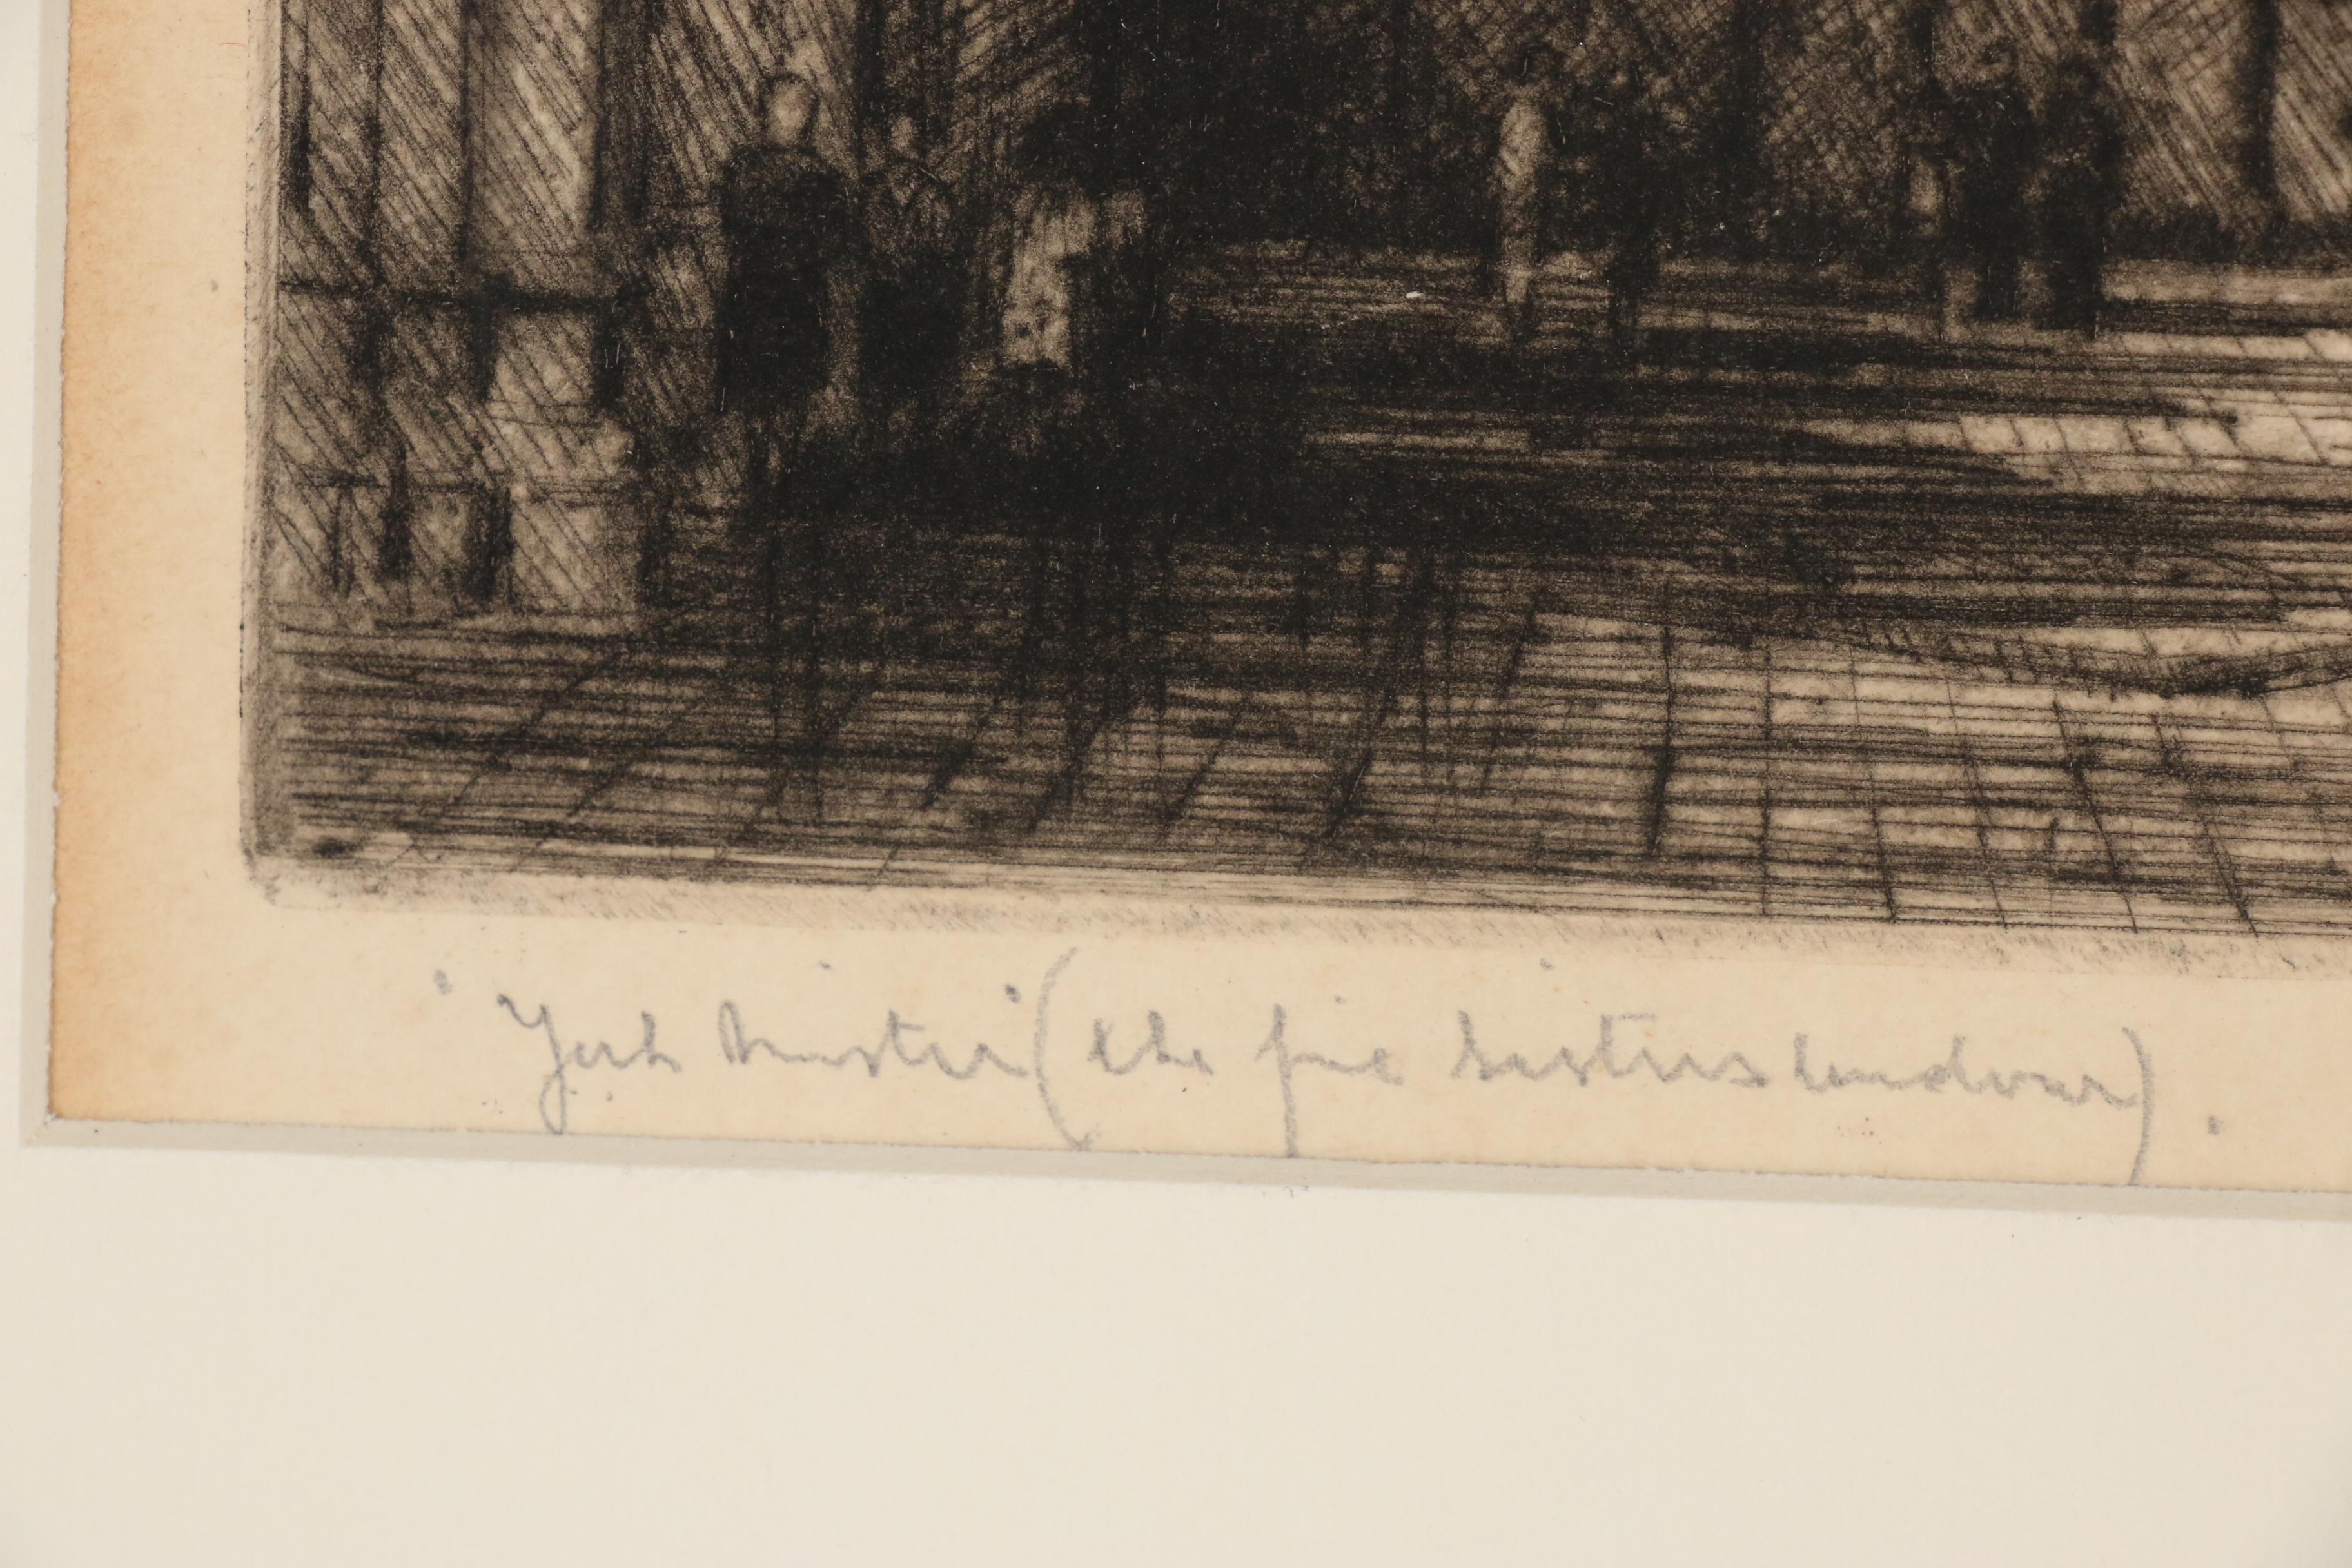 'York Minster' (the five sisters window).